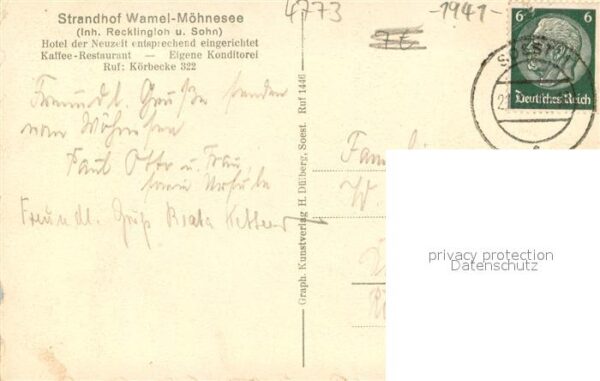 Strandhof Wamel-Möhnesee
(Inh. Recklingloh u. Sohn)
Hotel der Neuzeit entsprechend eingerichtet
Kaffee-Restaurant — Eigene Konditorei
Ruf: Körbecke 322
4773
-1941-
6 6
Deutsches Reich
SOEST
Freundl. Grüße senden
vom Möhnesee
Paul Otto u. Frau
Freundl. Gruß
Graph. Kunstverlag H. Dülberg, Soest. Ruf 1446
privacy protection
Datenschutz